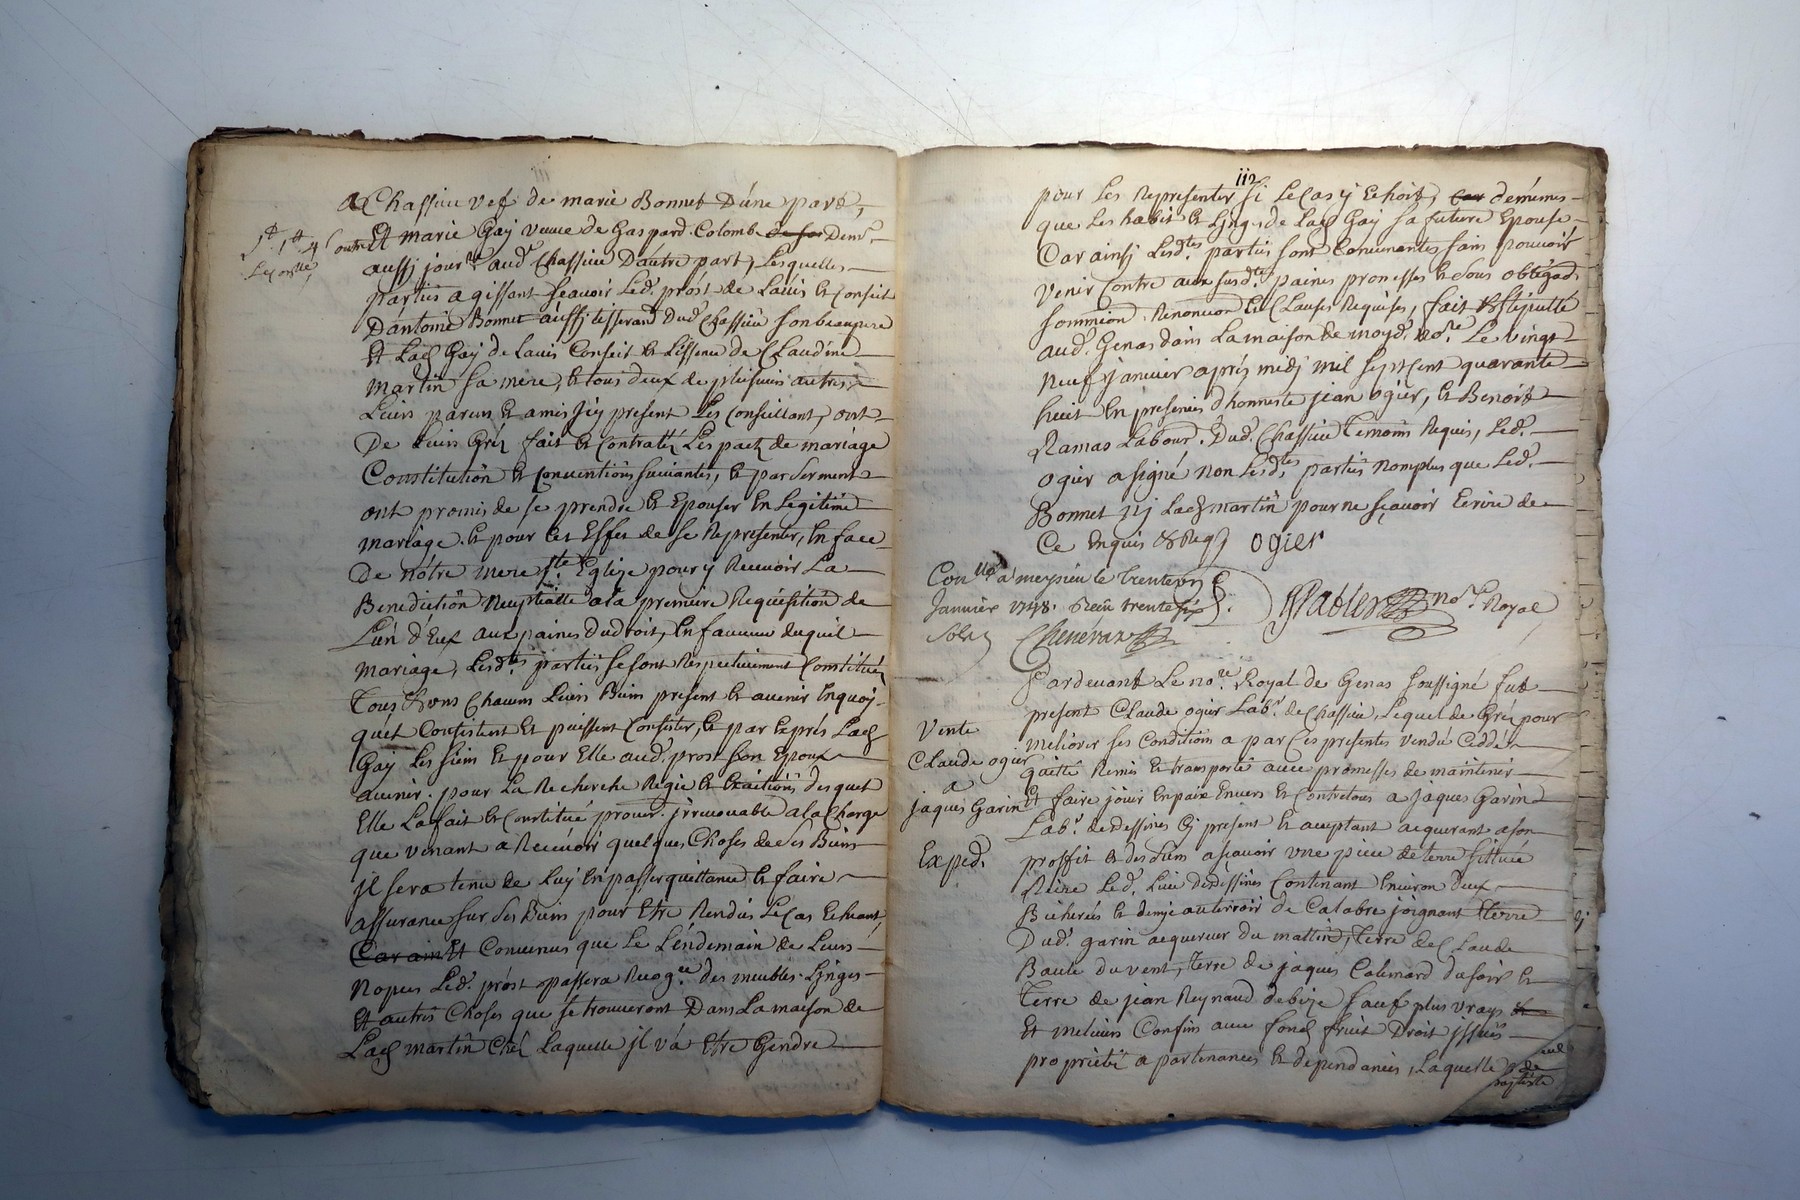 a Chassieu vef de marie Bonnet D'une part,
Et marie Gay veuve de Gaspard Colombe de son Demr.
aussy jourre. aud. Chassieu D'autre part, Lesquelles
parties agissant scavoir Led. prost de Lavis & Conseil
D'antoine Bonnet aussy tisserand Dud. Chassieu son beaupere
Et Lad. Gay de lavis Conseil & Licence de Claudine
Martin sa mere, & tous deux de plusieurs autres
Leurs parens & amis jcy present Les Conseillant, ont
De Leurs Gréz fait & Contratté Les pactz de mariage
Constitution & Conventions suivantes, & par serment
ont promis de se prendre & Epouser En Legitime
mariage. & pour Cet Effet de se Representer, En face
De nôtre mere ste. Eglize pour y Recevoir La
Benediction Nuptialle a la premiere Requisition de
L'un d'Eux aux paines du droit, En faveur duquel
mariage, Lesdtes. parties se sont Respectivement Constitué
Tous Chacuns Leurs Biens present & avenir Enquoy
quet Consistent Et puissent Consister, & par Exprés Lad.
Gay Les siens Et pour Elle aud. prost son Epoux
avenir. pour La Recherche Regie & Exactions desquels
Elle La fait & Constitué procur. jrrevocable a la Charge
que venant a Recevoir quelques Choses de ses Biens
jl sera tenu de Luy En passer quittance & faire
assurance sur ses Biens pour Etre Rendus Le Cas Echeant
Car ainsi Et Convenus que Le Lendemain de Leurs
Nopces Led. prost passera Recog. des meubles Linges
Et autres Choses que se trouveront Dans La maison de
Lad. martin Chez Laquelle jl va Etre Gendre
112
pour Les Representer si Le Cas y Echoit, Car demêmes
que Les habits & Linges de Lad. Gay sa future Epouse
Car ainsy Lesdtes. parties sont Convenantes sans pouvoir
venir Contre aux susd. paines promesses & sous obligad.
sommion. Renoncion & Clauses Requises, fait & stipullé
aud. Genas dans La maison de moyd. nore. Le vingt
Neuf Janvier aprés midy mil sept Cent quarante
huit En presences d'honneste jean ogier, & Benoist
Ramas Labour. Dud. Chassieu Temoins Requis, Led.
ogier a signé non Lesdtes. parties Nomplus que Led.
Bonnet ny Lad. martin pour ne sçavoir Ecrire de
Ce Enquis & Req. ogier
Conllé a meyzieu le trente un
Janvier 1748. Reçu trente six
sols
Chenévaz
Pardevant Le nore. Royal de Genas soussigné fut
present Claude ogier Labr. de Chassieu, Lequel de Gréz pour
Vente
Claude ogier
a
jaques Garin
Exped.
meliorer ses Conditions a par Ces presentes vendu Ceddé
quitté Remis & transporté avec promesses de maintenir
Et faire jöuir En paix Envers & Contre tous a Jaques Garin
Labr. de dessines Cy present & acceptant acquerant a son
proffit & des siens asçavoir une piece de terre sittuée
Riere Led. Lieu de dessines Contenant Environ Deux
Bicherées & demye au terroir de Calabre joignant Terre
Dud. garin acquereur du mattin, Terre de Claude
Baule du vent, Terre de jaques Colimard du soir &
Terre de jean Reynaud de bize sauf plus vrays
Et meliurs Confins avec fond fruit Droit jssues
proprieté apartenances & dependances, Laquelle